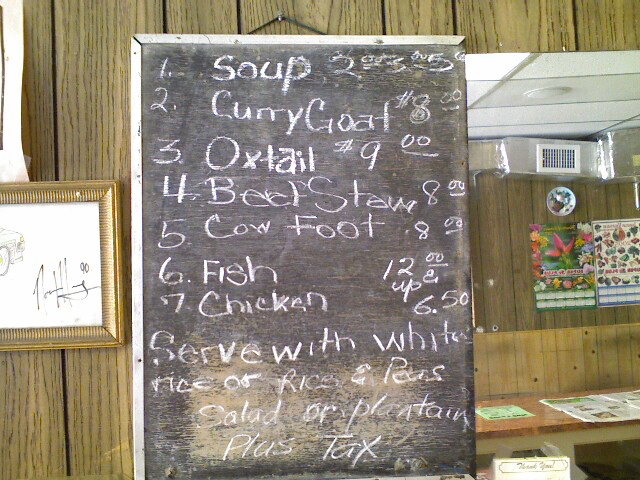 1. Soup 2.00 3.00 5.00
2. Curry Goat $8.00
3. Oxtail $9.00
4. Beef Stew 8.00
5. Cow Foot .8.00
6. Fish 12.00 & up
7. Chicken 6.50
Serve with white
rice or Rice & Peas
Salad or plantain
Plus Tax
90
Thank You!